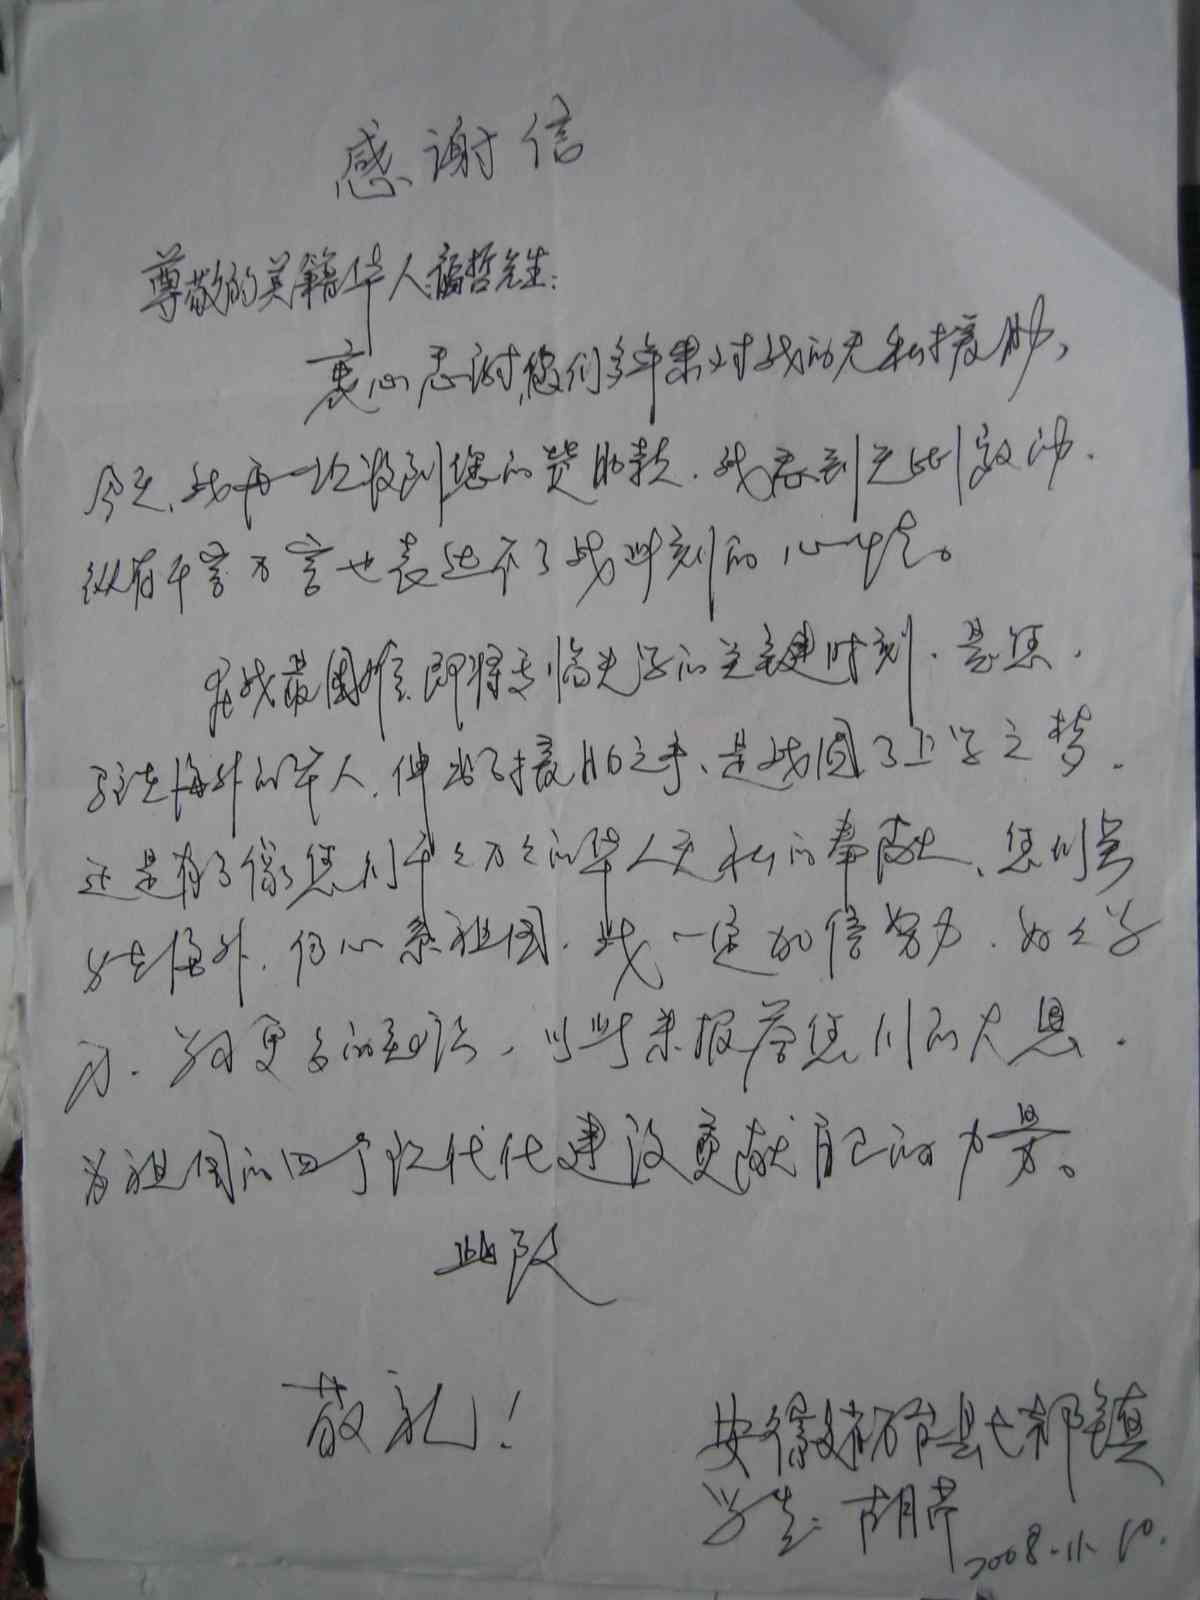 感谢信
尊敬的英籍华人福哲先生：
衷心感谢您们多年来对我的无私援助，
今天，我再一次收到您的赞助款，我感到无比激动，
纵有千言万言也表达不了我此刻的心情。
在我最困难、即将面临失学的关键时刻，是您，
在海外的华人，伸出了援助之手，是我圆了上学之梦，
还是有了像您们千千万万的华人无私的奉献，您们虽
身在海外，仍心系祖国，我一定加倍努力，好好学
习，学到更多的知识，以此来报答您们的大恩，
为祖国的四个现代化建设贡献自己的力量。
此致
敬礼！
安徽省 县七 镇
学生：胡芹
2008.11.10.